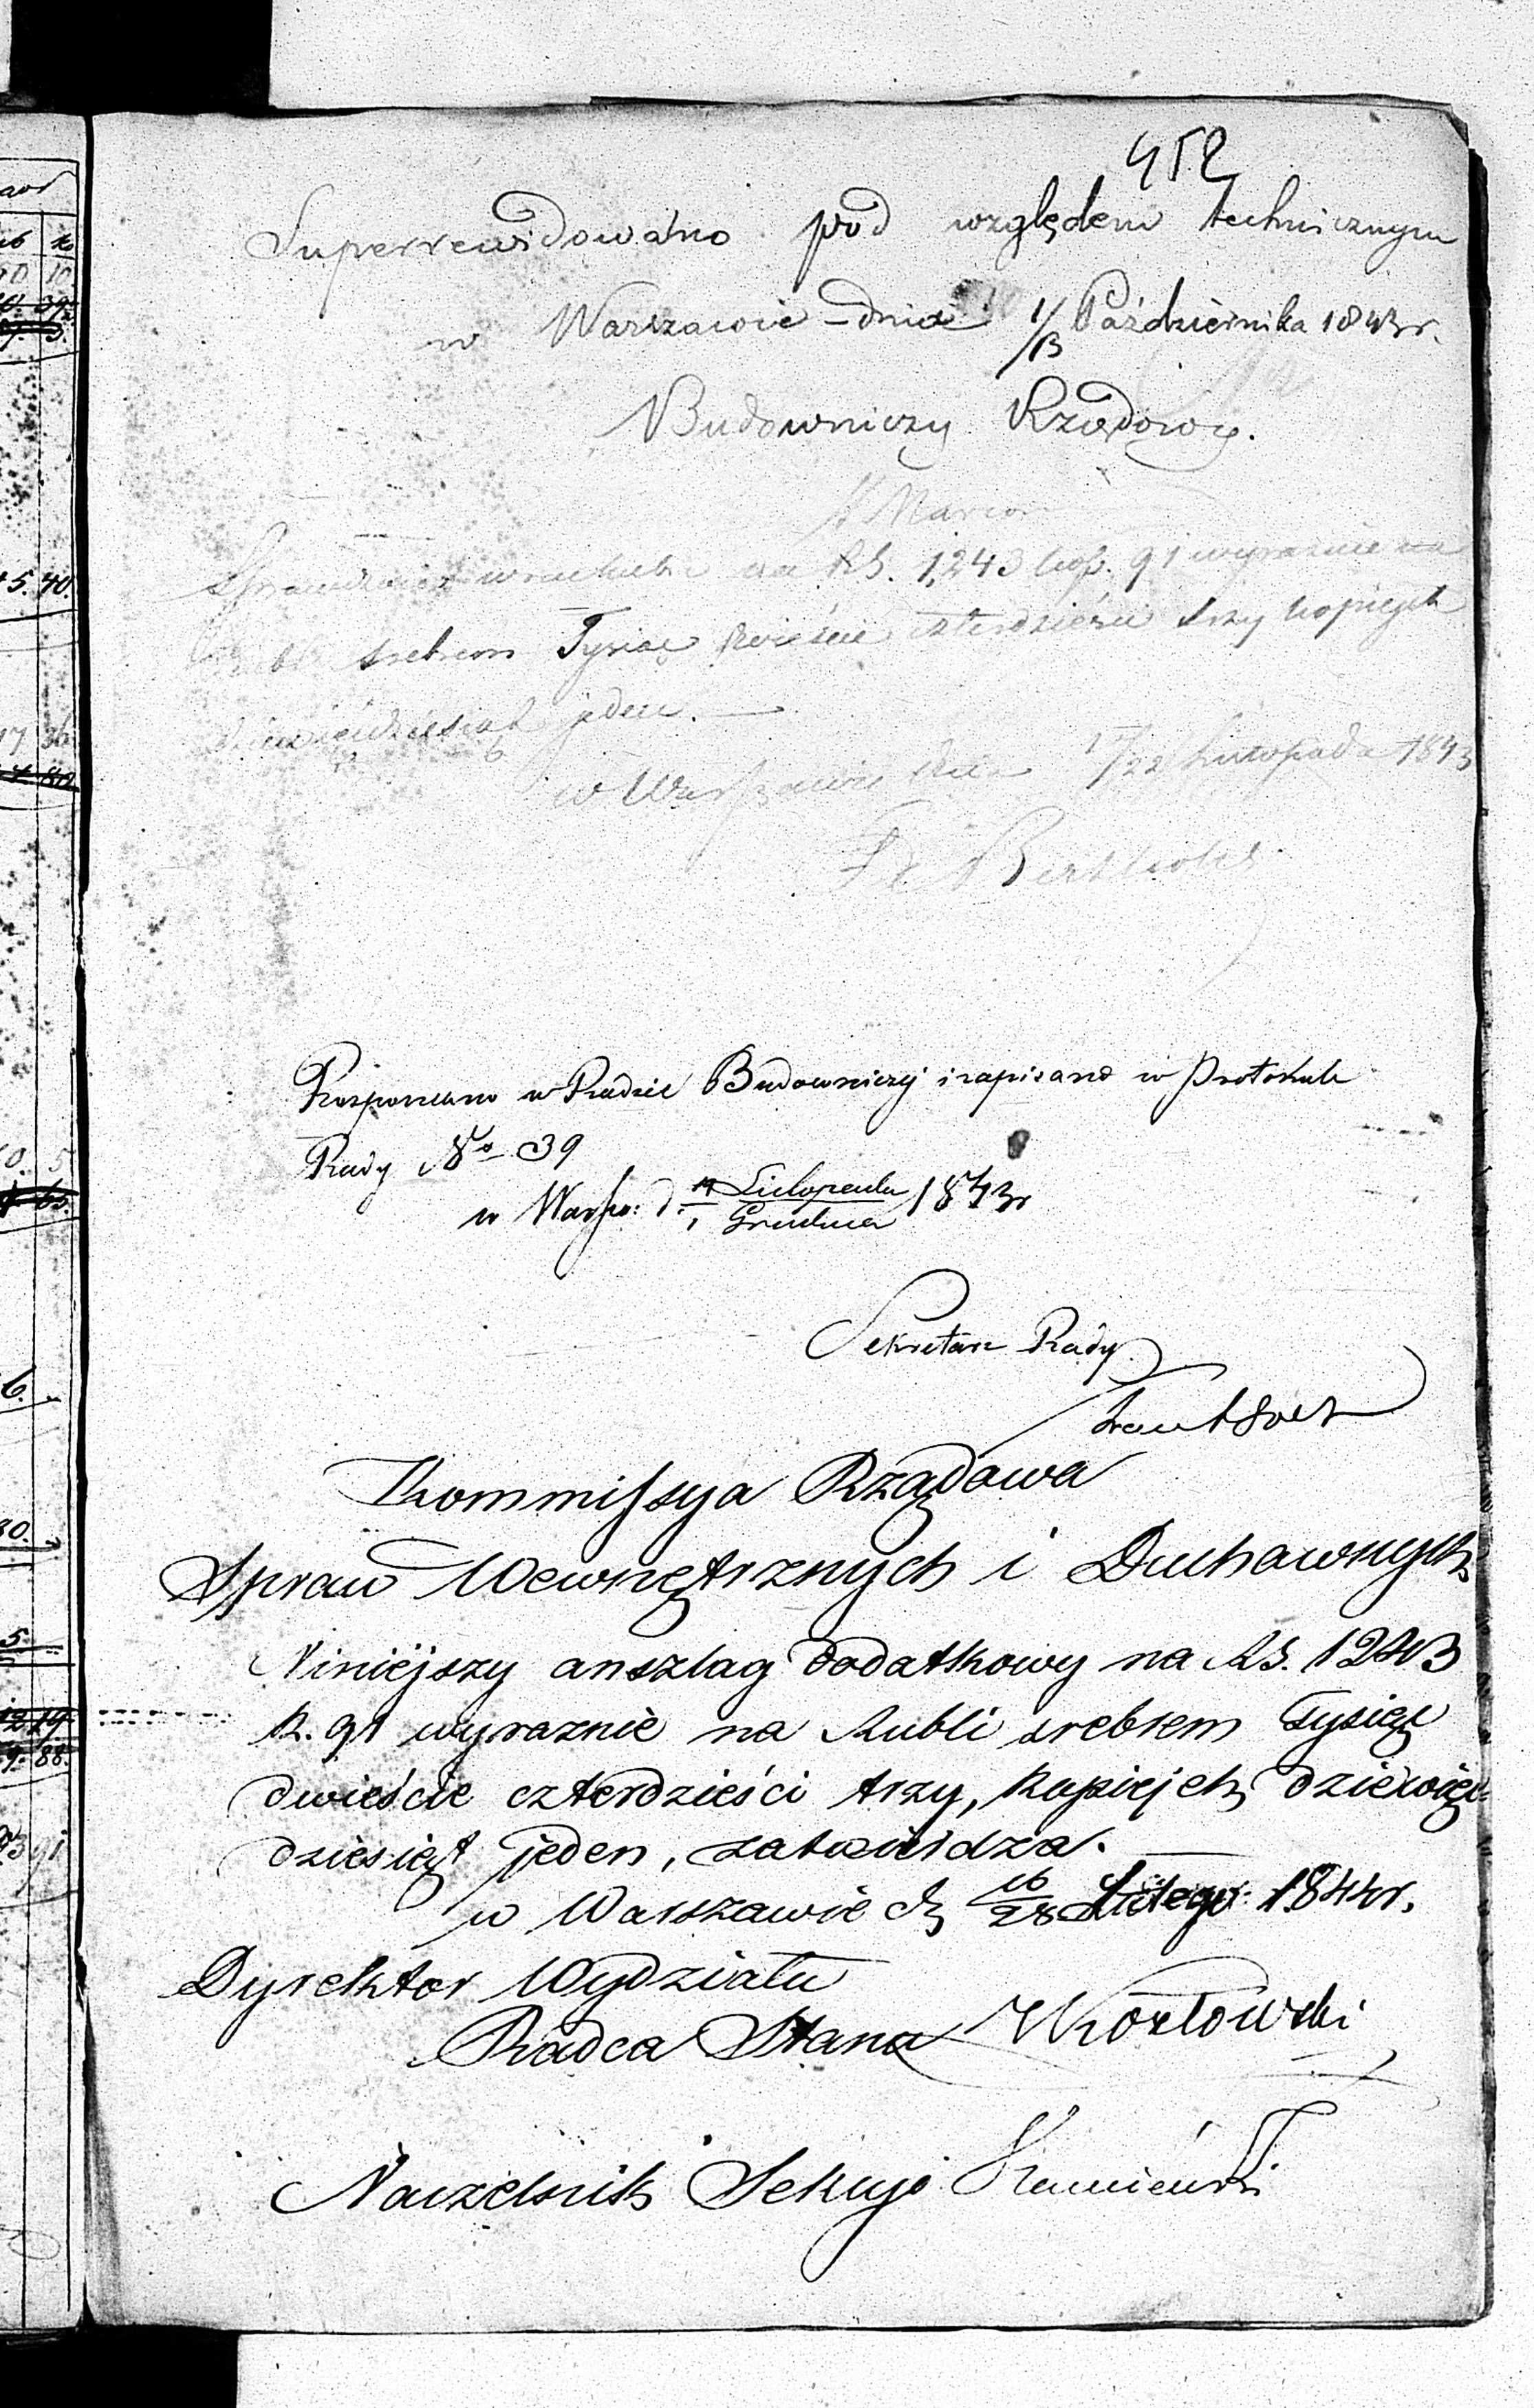 452
Superrewidowano pod względem technicznym
w Warszawie dnia 1/13 Października 1843 r.
Budowniczy Rządowy.
Sprawdzono na RS. 1,243 kop. 91 wyraźnie na
srebrem Tysiąc dwieście czterdzieści trzy kopiejek
dziewięćdziesiąt jeden.
w Warszawie dnia /22 Listopada 1843
Rozpoznano w Radzie Budowniczej i zapisano w Protokule
Rady No 39
w Warsz: d. Listopada / 1 Grudnia 1843 r
Sekretarz Rady
Kommissya Rządowa
Spraw Wewnętrznych i Duchownych
Niniejszy anszlag dodatkowy na RS. 1243
k. 91 wyraznie na Rubli srebrem Tysiąc
dwieście czterdzieści trzy, kopiejek dziewięć
dziesiąt jeden, zatwierdza.
w Warszawie d. 16/28 Lutego 1844 r.
Dyrektor Wydziału
Radca Stanu Kozłowski
Naczelnik Sekcyi
40
36
80
5
63
6.
5
19
88
91